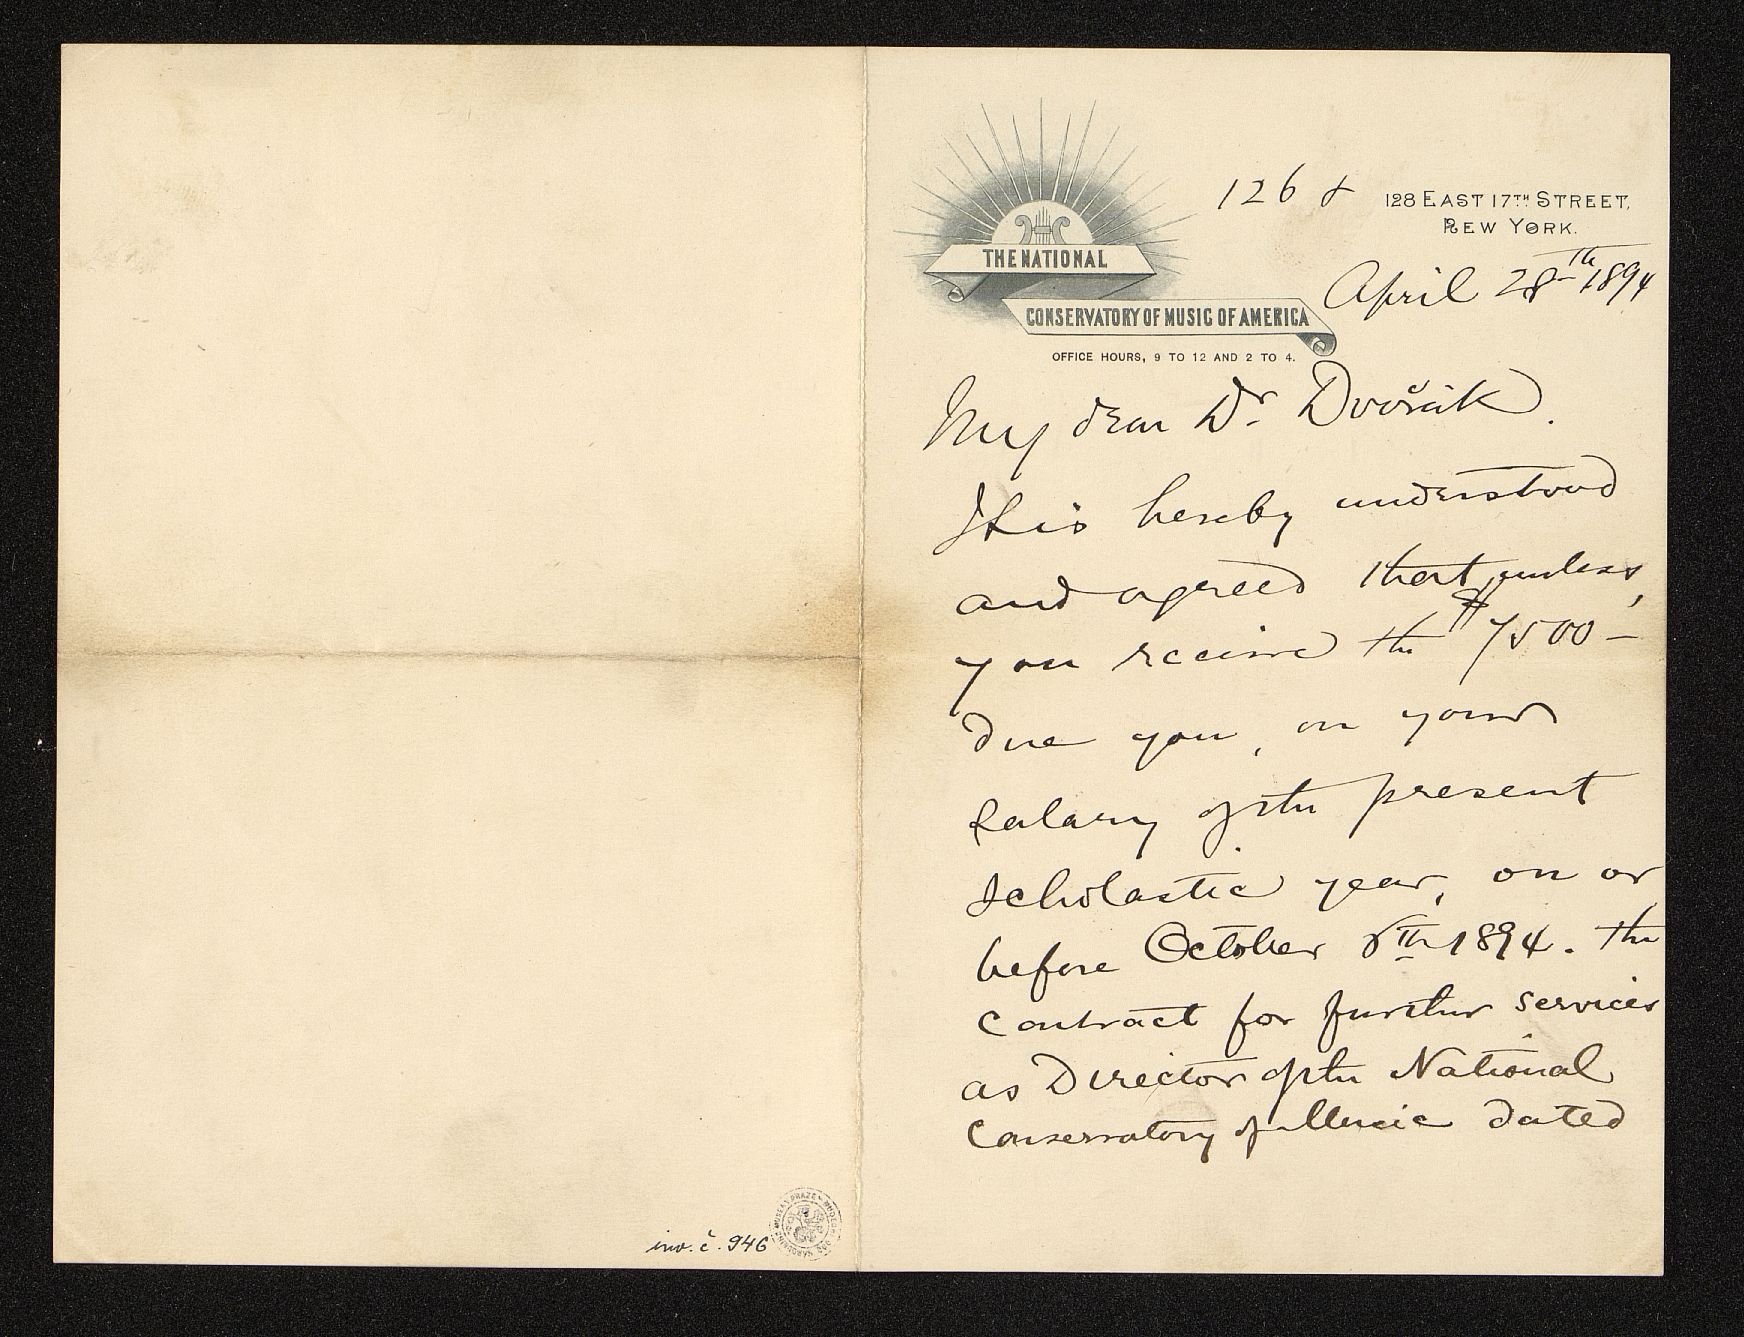 126 & 128 EAST 17TH STREET,
NEW YORK.
April 28th 1894
THE NATIONAL
CONSERVATORY OF MUSIC OF AMERICA
OFFICE HOURS, 9 TO 12 AND 2 TO 4.
My dear Dr. Dvořák.
It is hereby understood
and agreed that, unless,
you receive the $7500 —
due you, on your
salary of the present
scholastic year, on or
before October 8th 1894. the
contract for further services
as Director of the National
Conservatory of Music dated
inv. č. 946